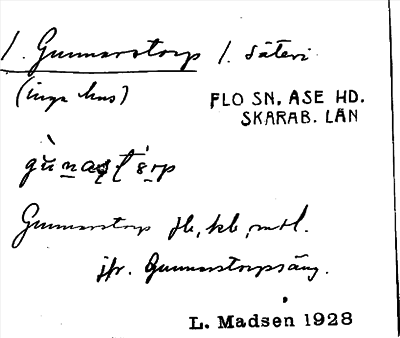 1. Gunnarstorp 1. säteri
(inga hus)
FLO SN, ASE HD.
SKARAB. LÄN
Gunnarstorp jb, kb, mtl.
jfr. Gunnarstorpsäng.
L. Madsen 1928